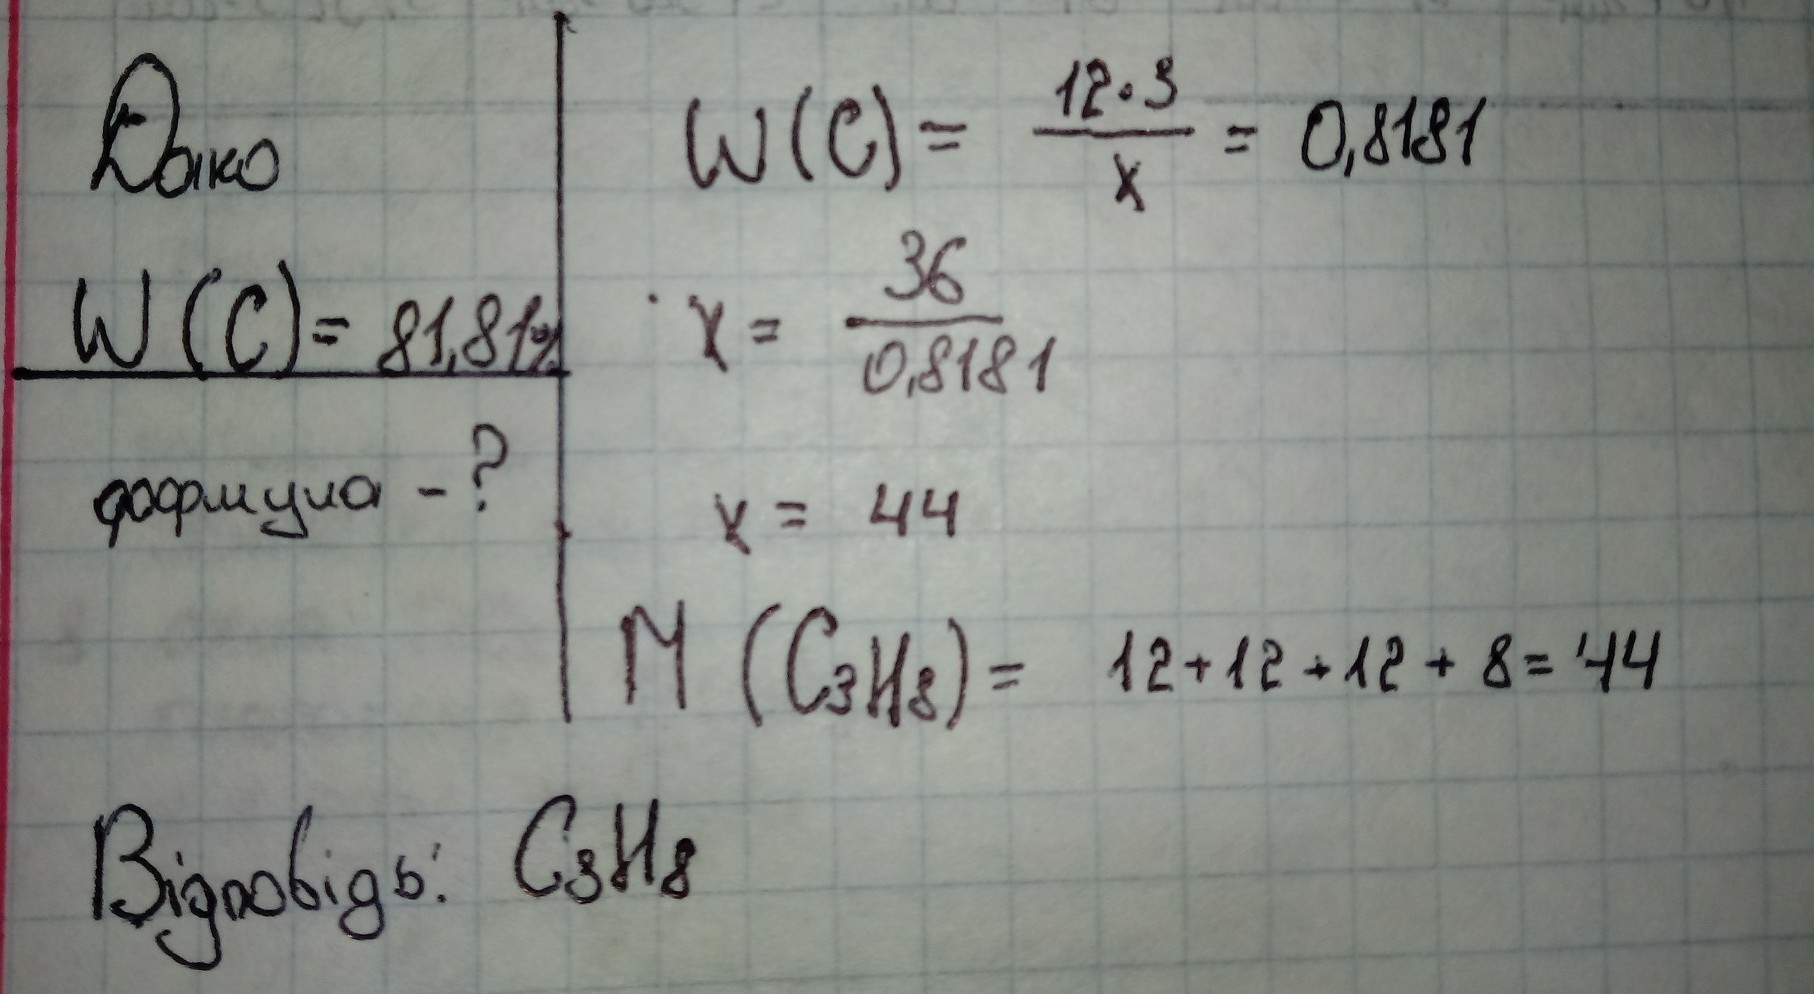 Дано
W(C) = 81,81%
формула - ?
W(C) = 12·3 / x = 0,8181
x = 36 / 0,8181
x = 44
M (C₃H₈) = 12+12+12+8=44
Відповідь: C₃H₈